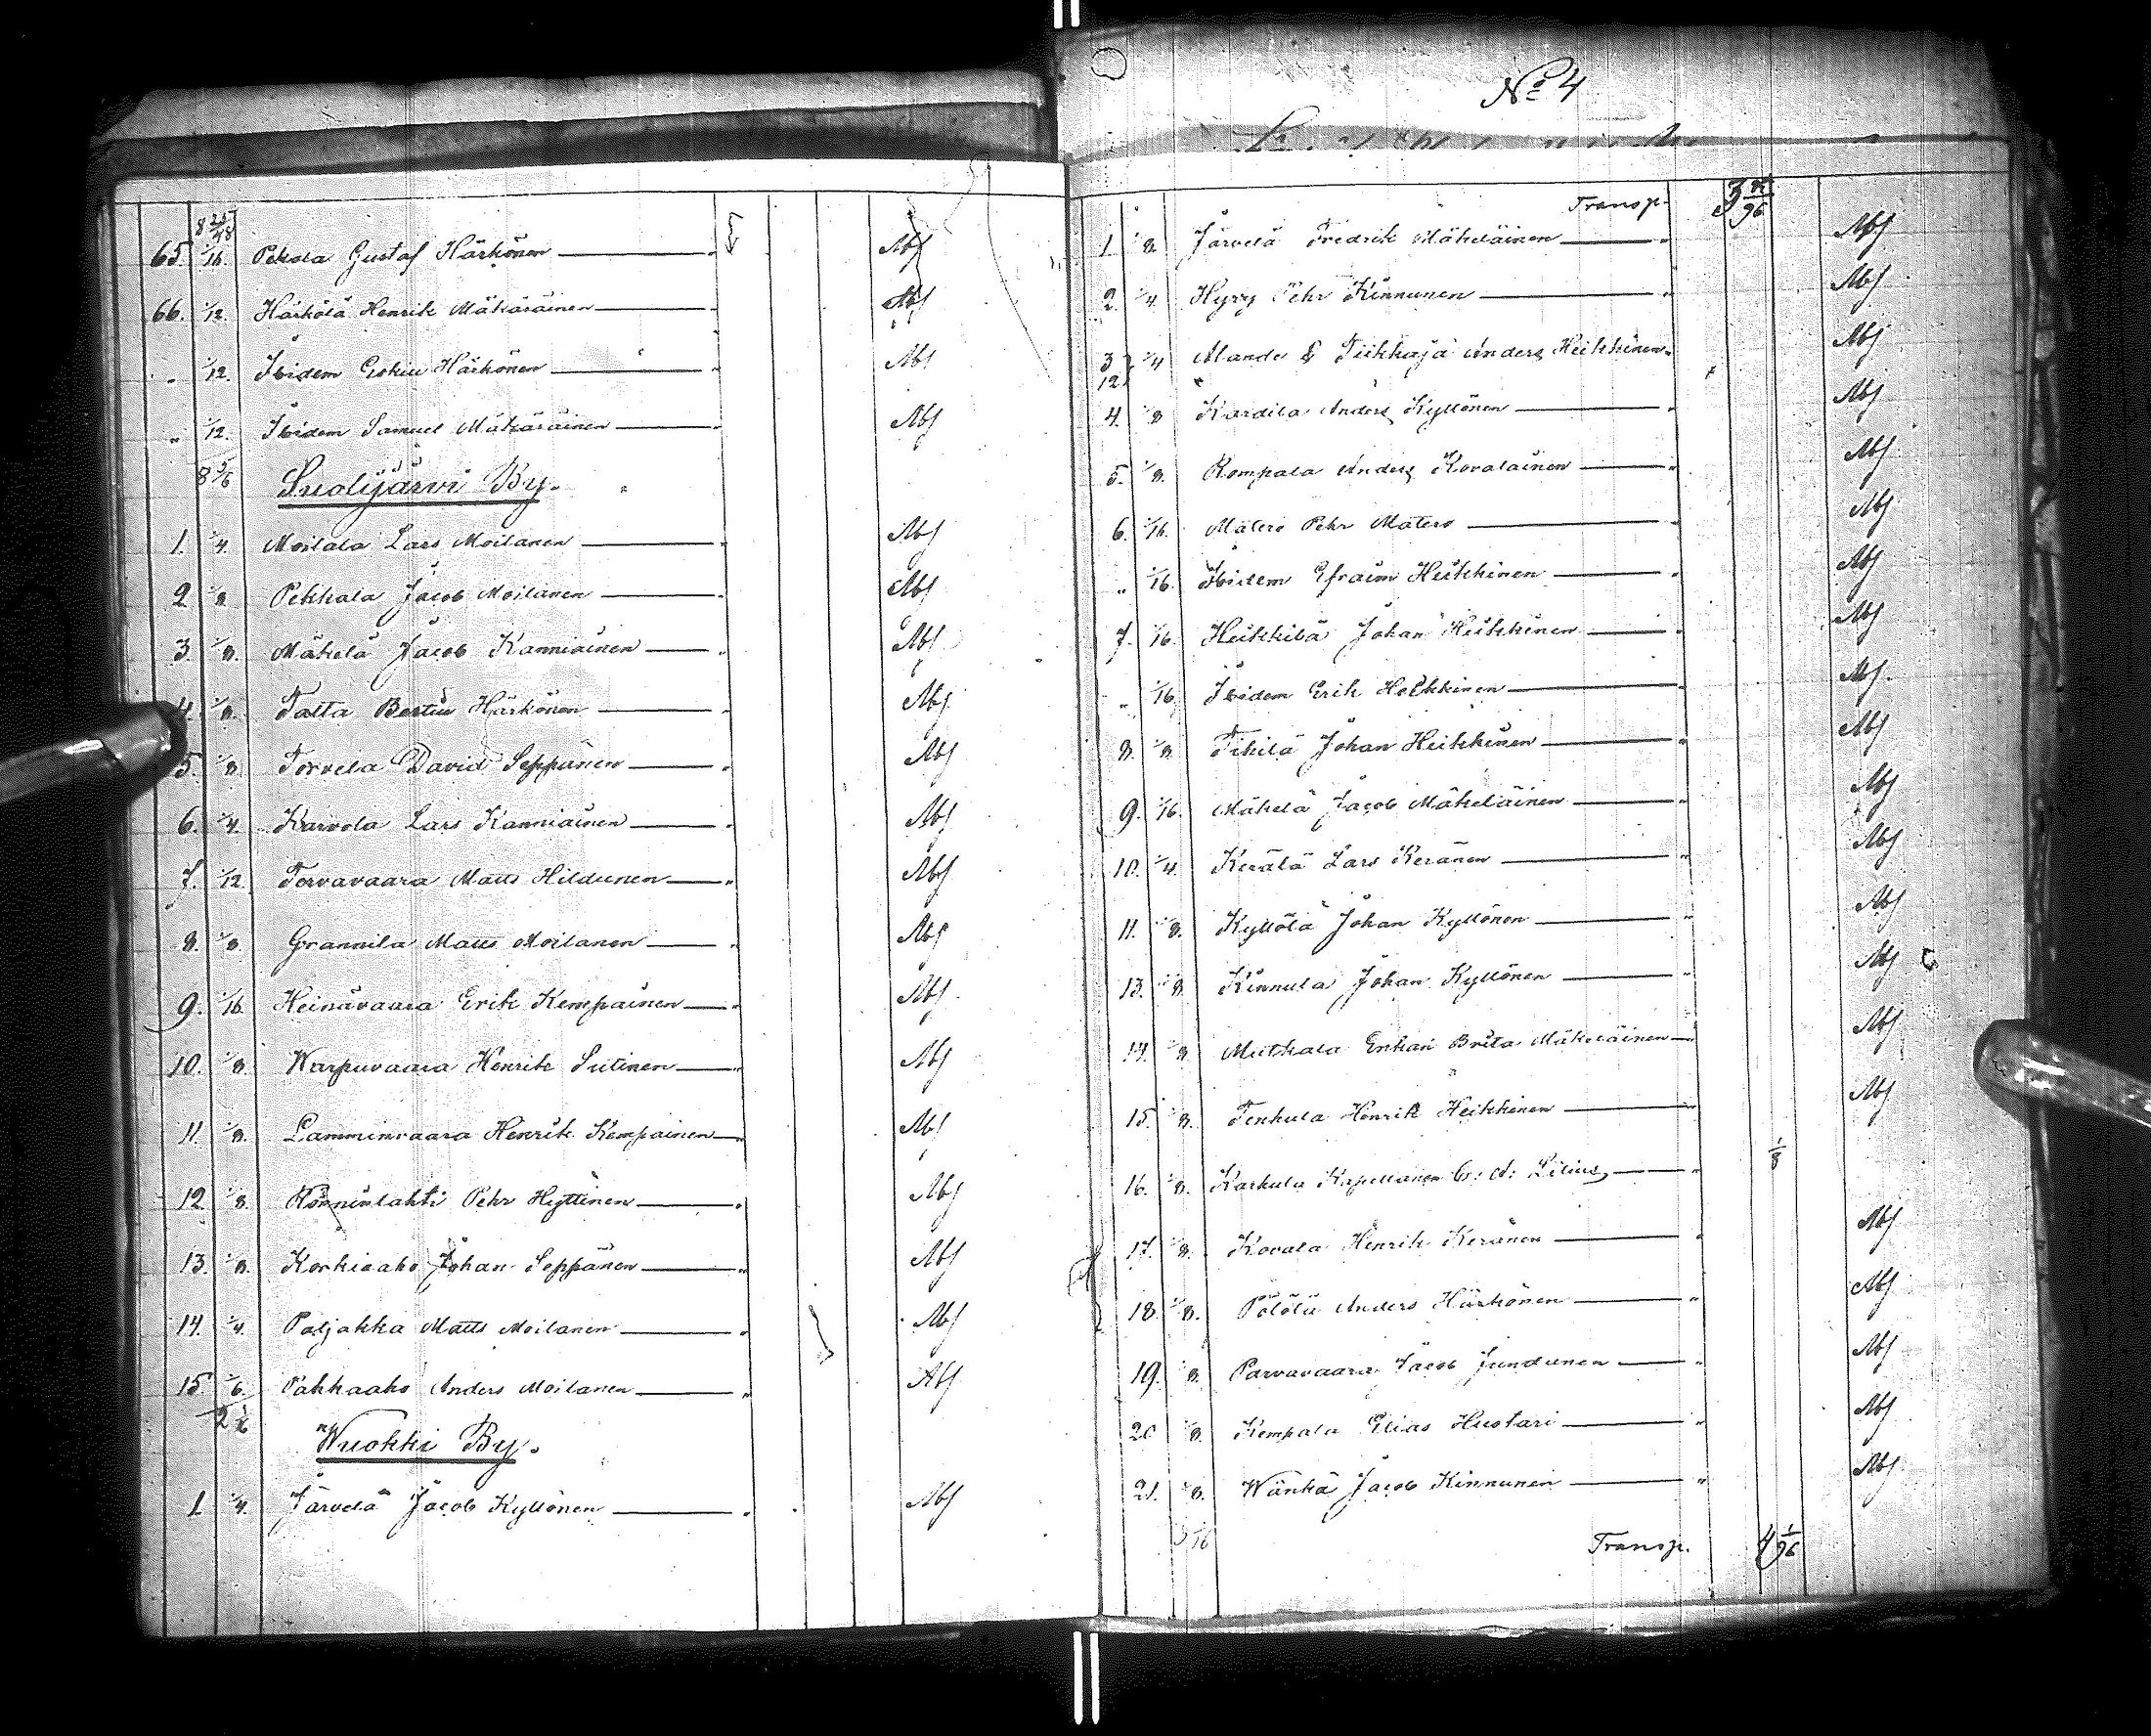 8 25/48
65. 1/16. Pekola Gustaf Härkönen Abs
66. 1/12. Härkölä Henrik Mäkäräinen Abs
" 1/12. Ibidem Eskil Härkönen Abs
" 1/12. Ibidem Samuel Mäkäräinen Abs
8 5/6 Suolijärvi By.
1. 1/4. Moilala Lars Moilanen Abs
2 1/8 Pekkala Jacob Moilanen Abs
3. 1/8. Mäkelä Jacob Kanniainen Abs
4. 1/8. Talta Bertil Härkönen Abs
5. 1/8. Torvela David Seppänen Abs
6. 1/4. Karvola Lars Kanniainen Abs
7. 1/12. Tervavaara Matts Hildunen Abs
8. 1/8. Grannila Matts Moilanen Abs
9. 1/16 Heinävaara Erik Kempainen Abs
10. 1/8. Warpuvaara Henrik Sutinen Abs
11. 1/8. Lamminvaara Henrik Kempainen Abs
12 1/8. Rönninlahti Pehr Hyttinen Abs
13. 1/8. Korkiaaho Johan Seppänen Abs
14. 1/4. Paljakka Matts Moilanen Abs
15. 1/6. Pakkaaho Anders Moilanen Abs
Wuokki By.
1 1/4. Järvelä Jacob Kyllönen Abs
No 4
Transp.
1. 1/8 Järvelä Fredrik Mäkeläinen Abs
2. 1/4 Hyry Pehr Kinnunen Abs
3 12 1/4 Alande & Tiikkaja Anders Heikkinen Abs
4. 1/8 Kardila Anders Kyllönen Abs
5. 1/8. Rompala Anders Kovalainen Abs
6. 1/16. Matero Pehr Matero Abs
" 1/16. Ibidem Efraim Heikkinen Abs
7. 1/16. Heikkilä Johan Heikkinen Abs
" 1/16 Ibidem Erik Heikkinen Abs
8. 1/8 Tikilä Johan Heikkinen Abs
9. 1/16. Mäkelä Jacob Mäkeläinen Abs
10. 1/4. Kerälä Lars Keränen Abs
11. 1/8. Kyllölä Johan Kyllönen Abs
13. 1/8. Kinnula Johan Kyllönen Abs
14. 1/8. Mutkala Enkan Brita Mäkeläinen Abs
15. 1/8. Tenkula Henrik Heikkinen Abs
16. 1/8. Karkula Kapellanen G: A: Lilius 1/8
17. 1/8. Kovala Henrik Keränen Abs
18. 1/8. Pölölä Anders Härkönen Abs
19. 1/8. Parvavaara Jacob Jundunen Abs
20 1/8. Kempala Elias Huotari Abs
21. 1/8. Wänkä Jacob Kinnunen Abs
Transp. 4 1/96